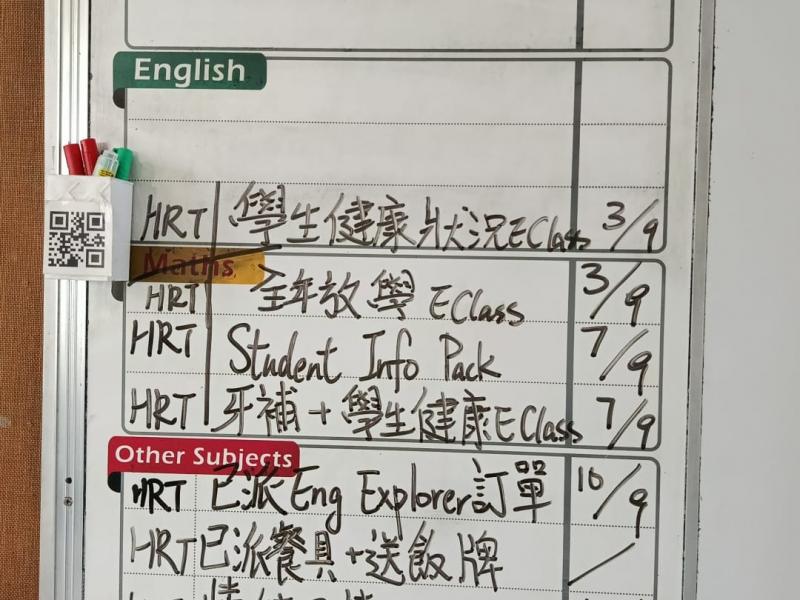 English
HRT 學生健康狀況EClass 3/9
Maths
HRT 全年放學 EClass 3/9
HRT Student Info Pack 7/9
HRT 牙補+學生健康EClass 7/9
Other Subjects
HRT 已派Eng Explorer訂單 10/9
HRT 已派餐具+送飯牌